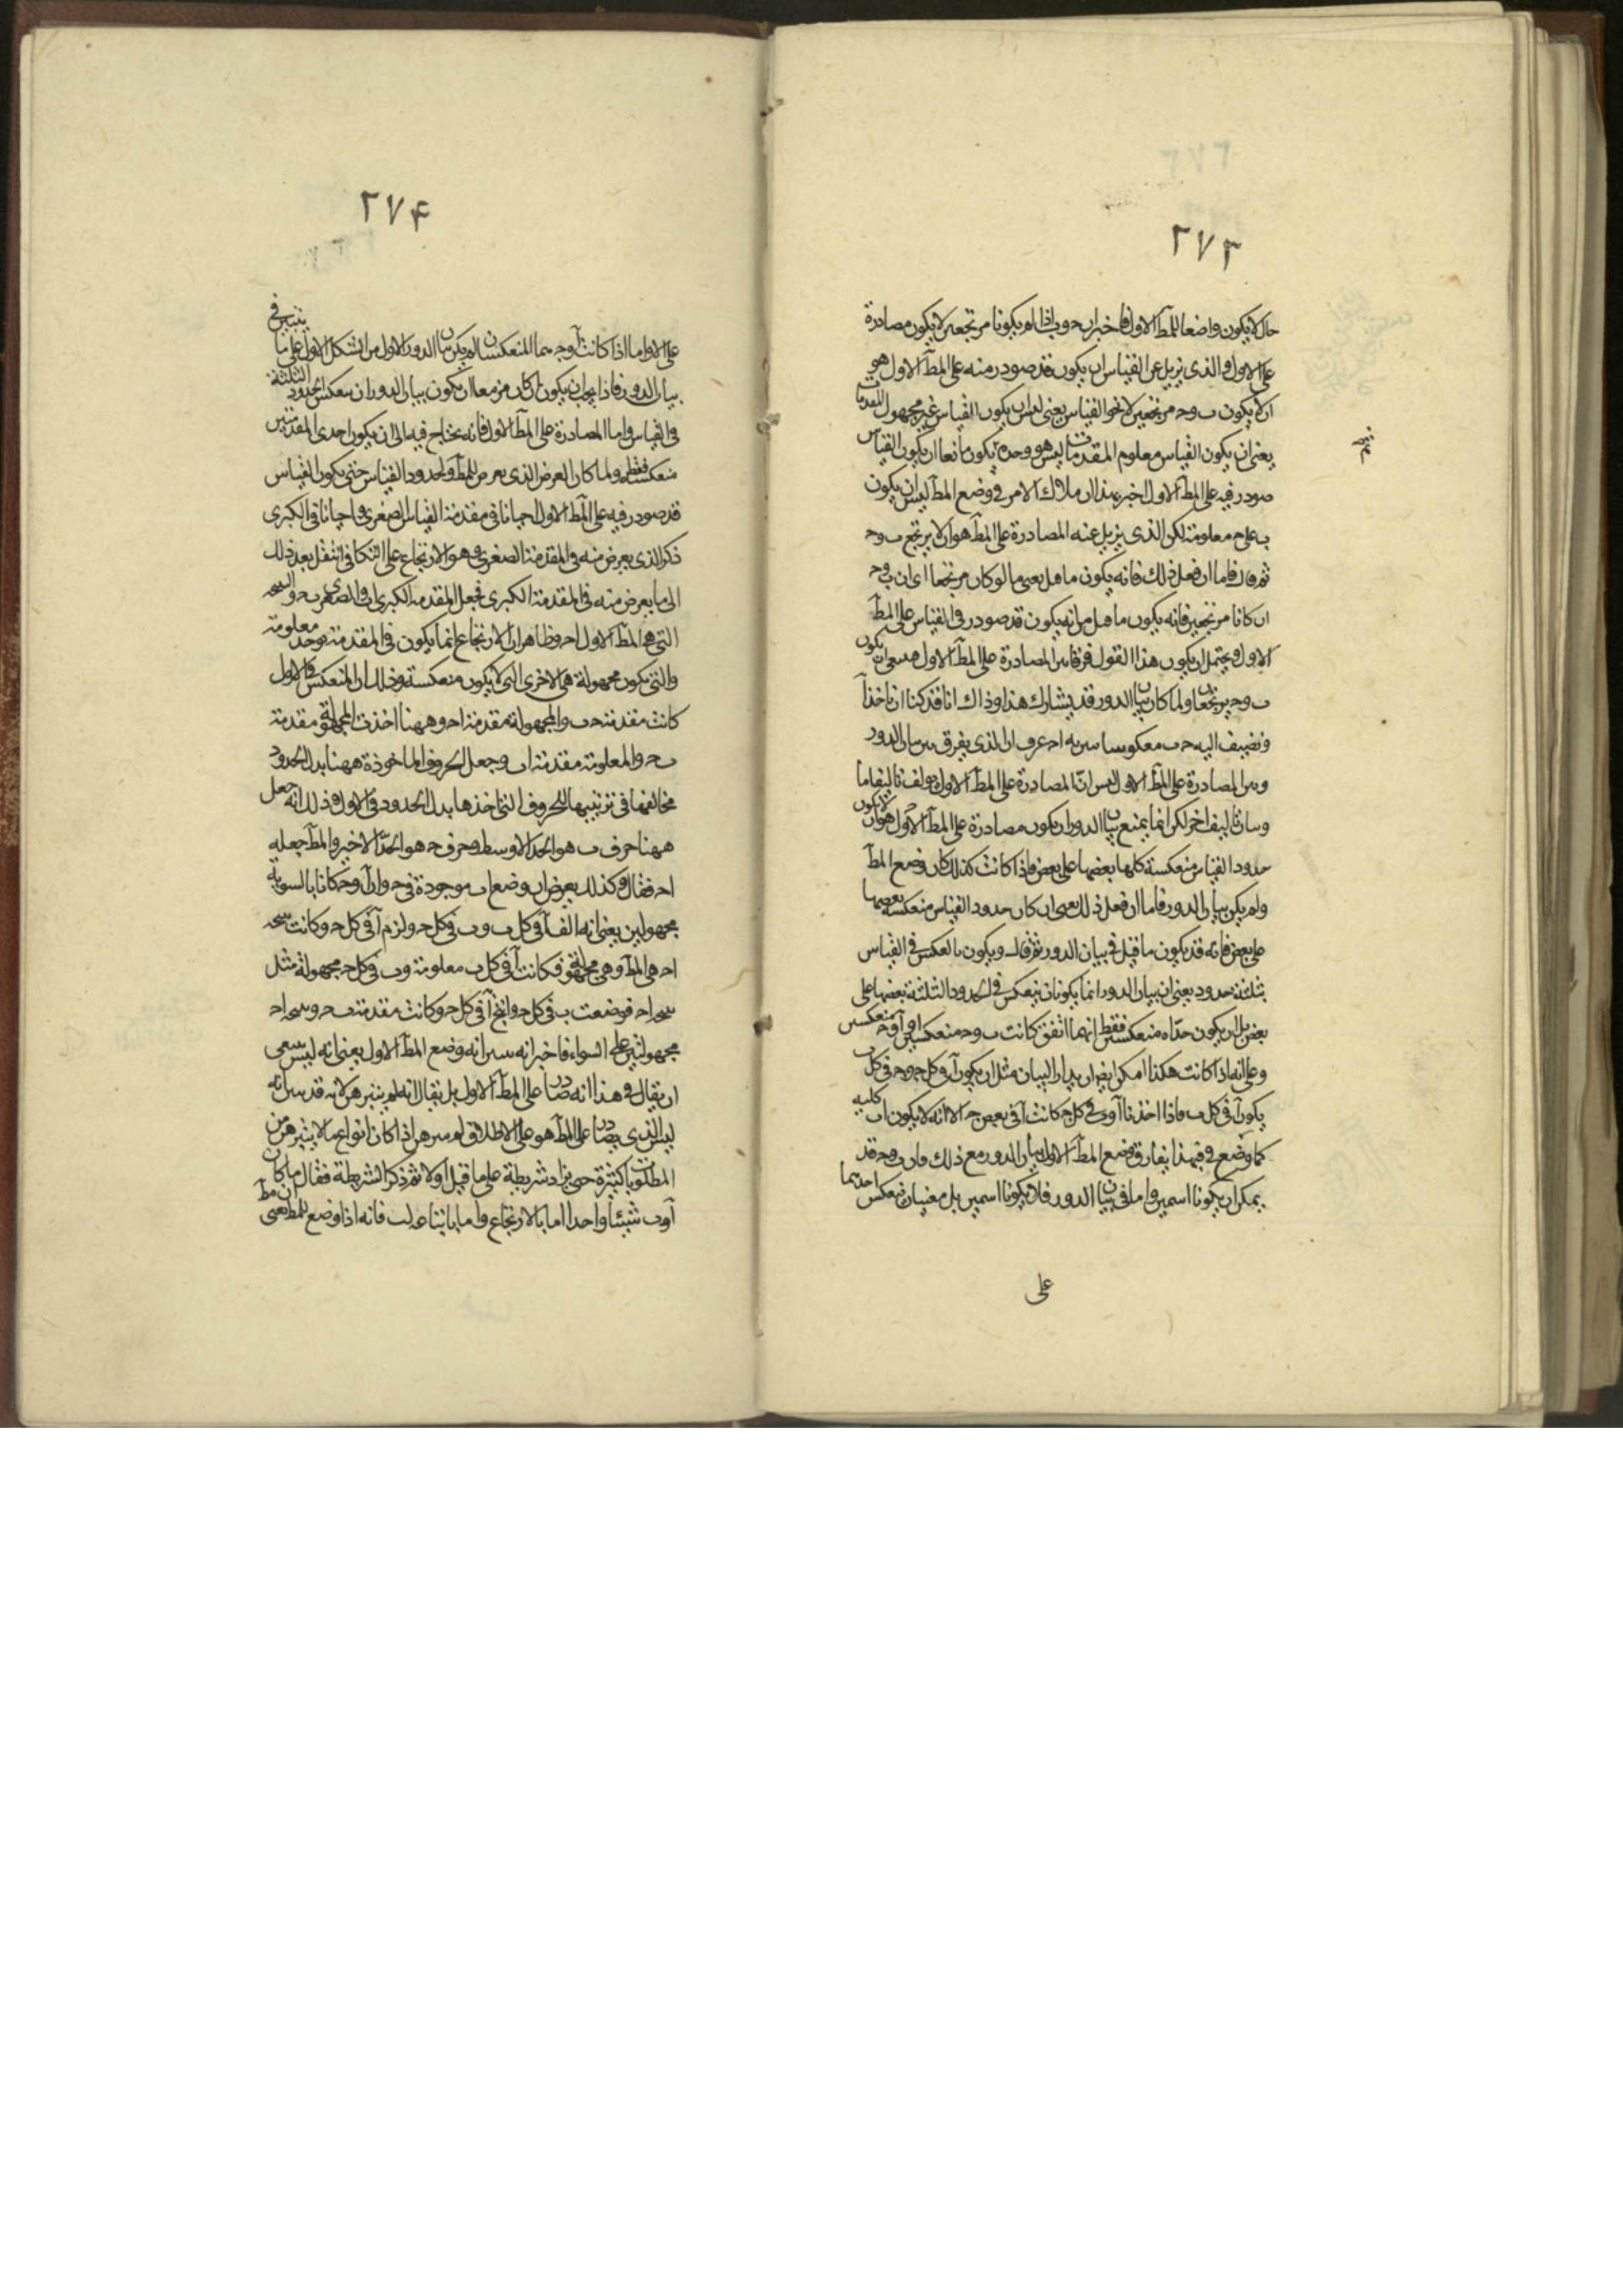 ٢٧٣
حال لا يكون واضعا للمط الاول فاخبر ان حـ و ب اذا لم يكونا مرتجعين لا يكون مصادرة
على الاول والذى يزيل عن القياس ان يكون قد صودر منه على المط الاول هو
ان لا يكون ب و حـ مرتجعين لا نحو القياس يعنى ليس ان يكون القياس غير مجهول المقدمات
يعنى ان يكون القياس معلوم المقدمات ليس هو وحده يكون مانعا ان يكون القياس
صودر فيه على المط الاول اخبر بهذا ان ملاك الامر فى وضع المط ليس ان يكون
ب على حـ معلومة لكن الذى يزيل عنه المصادرة على المط هو ان لا يرتجع ب و حـ
ثم قال فاما ان فعل ذلك فانه يكون ما قيل يعنى ما لو كان مرتجعا اى ان ب و حـ
ان كانا مرتجعين فانه يكون ما قيل من انه يكون قد صودر فى القياس على المط
الاول ويحتمل ان يكون هذا القول فرقا من المصادرة على المط الاول فينبغى ان يكون
ب و حـ يرتجعا ولما كان بيان الدور قد يشارك هذا وذاك انا قد كنا ان ناخذ ا حـ
ونضيف اليه حـ ب معكوسا عرف ان الذى يفرق بين بيان الدور
وبين المصادرة على المط الاول ليس ان المصادرة على المط الاول يولف تاليفا ما
تاليف اخر لكن انما يمنع بيان الدور ان يكون مصادرة على المط الاول هو ان لا يكون
حدود القياس منعكسة كلها بعضها على بعض فاذا كانت كذلك كان وضع المط
ولم يكن بيان الدور فاما ان فعل ذلك يعنى ان كان حدود القياس منعكسة بعضها
على بعض فانه قد يكون ما قيل فى بيان الدور ثم قال ويكون بالعكس فى القياس
بثلثة حدود يعنى ان بيان الدور انما يكون ان ينعكس فى الحدود الثلثة بعضها على
بعض بل ان يكون حداه منعكسين فقط ايهما اتفق كانت ب و حـ منعكسين او آ و حـ منعكسين
وعلى انه اذا كانت هكذا امكن ايضا ان يدار البيان مثل ان يكون آ فى كل حـ و حـ فى كل
يكون آ فى كل ب فاذا اخذنا آ و فى كل حـ كانت آ فى بعض حـ الا انه لا يكون ا ب كليه
كما وضع فبهذا يفارق وضع المط الاول بيان الدور مع ذلك فان ب و حـ قد
يمكن ان يكونا اسمين واما فى بيان الدور فلا يكونا اسمين بل معنيان ينعكس احدهما
على
تم
٢٧٤
على الاول واما اذا كانت آ و حـ هما المنعكسان لم يكن بيان الدور الاول من الشكل الاول على ما تبين فى
بيان الدور فاذا يجب ان يكون ان كان مزمعا ان يكون بيان الدور ان ينعكس الحدود الثلثة
فى القياس واما المصادرة على المط الاول فانه يحتاج فيه الى ان يكون احدى المقدمتين
منعكسة فقط ولما كان العرض الذى يعرض للمط ولحدود القياس حتى يكون القياس
قد صودر فيه على المط الاول احيانا فى مقدمة القياس الصغرى واحيانا فى الكبرى
ذكر الذى يعرض منه فى المقدمة الصغرى وهو الارتجاع على التكافى انتقل بعد ذلك
الى ما يعرض منه فى المقدمة الكبرى فجعل المقدمة الكبرى ا ب والصغرى ب حـ والنتيجة
التى هى المط الاول ا حـ وظاهر ان الارتجاع انما يكون فى المقدمة توخذ معلومة
والتى يكون مجهولة هى الاخرى التى لا يكون منعكسة وذلك ان المنعكس فى الاول
كانت مقدمة حـ ب والمجهولة مقدمة ا حـ وههنا اخذت المجهولة مقدمة
ب حـ والمعلومة مقدمة ا ب وجعل الحروف الماخوذة ههنا بدل الحدود
مخالفها فى ترتيبها للحروف التى اخذها بدل الحدود فى الاول وذلك انه جعل
ههنا حرف ب هو الحد الاوسط وحرف حـ هو الحد الاخير والمط جعله
ا حـ فقال وكذلك يعرض ان وضع ا ب موجودة فى حـ وان آ و حـ كانا بالسوية
مجهولين يعنى انه الف آ فى كل ب و ب فى كل حـ ولزم آ فى كل حـ وكانت نتيجة
ا حـ هى المط وهى مجهولة فكانت آ فى كل ب معلومة و ب فى كل حـ مجهولة مثل
نتيجة ا حـ فوضعت ب فى كل حـ وانتج آ فى كل حـ وكانت مقدمة ب حـ ونتيجة ا حـ
مجهولتين على السواء فاخبر انه بين انه وضع المط الاول يعنى انه ليس ينبغى
ان يقال فى هذا انه صادر على المط الاول بل يقال انه لم يتبرهن لانه قد بين انه
ليس الذى يصادر على المط هو على الاطلاق لم يبرهن اذا كان انواع ما لا يتبرهن من
المطلوبات كثيرة حتى يزاد شريطة على ما قيل اولا ثم ذكر الشريطة فقال ان كان
آ و ب شيئا واحدا اما بالارتجاع واما باتباع ا لـ ب فانه اذا وضع للمط يعنى ان مط